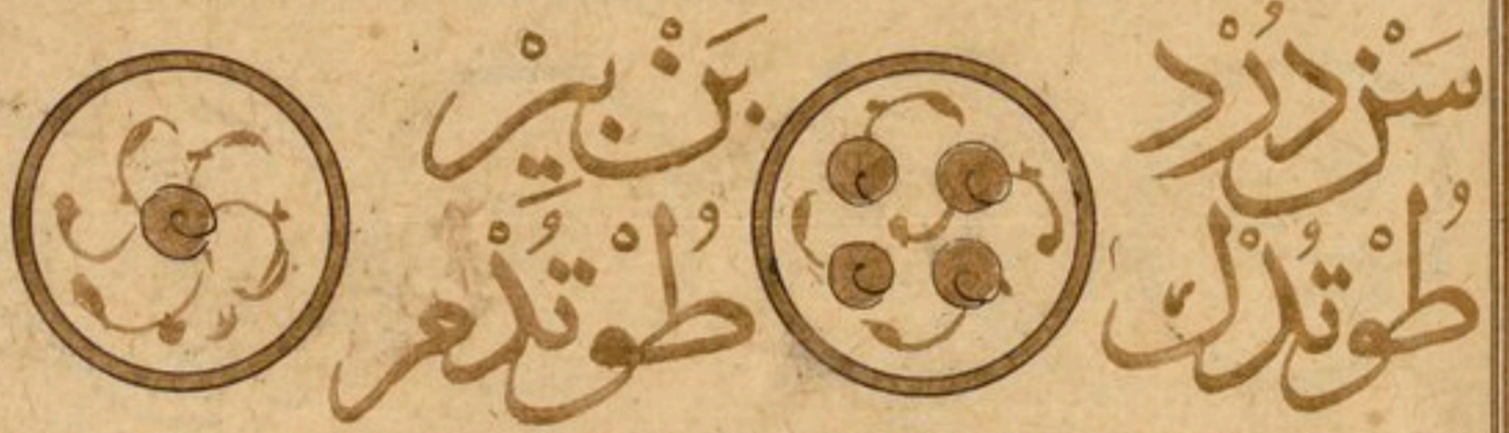 سَنْ دُرْد
طُوْتُدْك
بَنْ بِيرْ
طُوْتُدْم